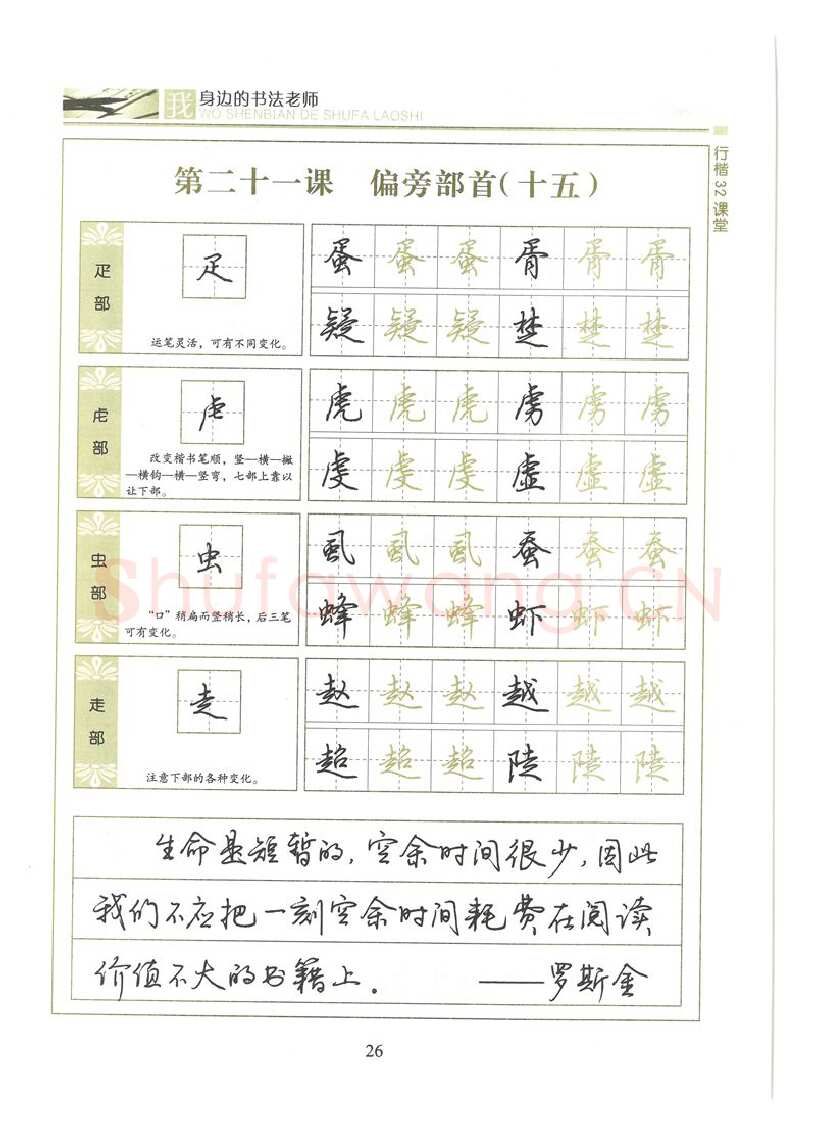 我 身边的书法老师
WO SHENBIAN DE SHUFA LAOSHI
行楷32课堂
第二十一课 偏旁部首(十五)
疋部
疋
运笔灵活，可有不同变化。
蛋 蛋 蛋 胥 胥 胥
疑 疑 疑 楚 楚 楚
虍部
虍
改变楷书笔顺，竖—横—撇
—横钩—横—竖弯，七部上靠以
让下部。
虎 虎 虎 虏 虏 虏
虔 虔 虔 虚 虚 虚
虫部
虫
“口”稍扁而竖稍长，后三笔
可有变化。
虱 虱 虱 蚕 蚕 蚕
蜂 蜂 蜂 虾 虾 虾
Shufawang.CN
走部
走
注意下部的各种变化。
赵 赵 赵 越 越 越
超 超 超 陡 陡 陡
生命是短暂的,空余时间很少,因此
我们不应把一刻空余时间耗费在阅读
价值不大的书籍上。 ——罗斯金
26